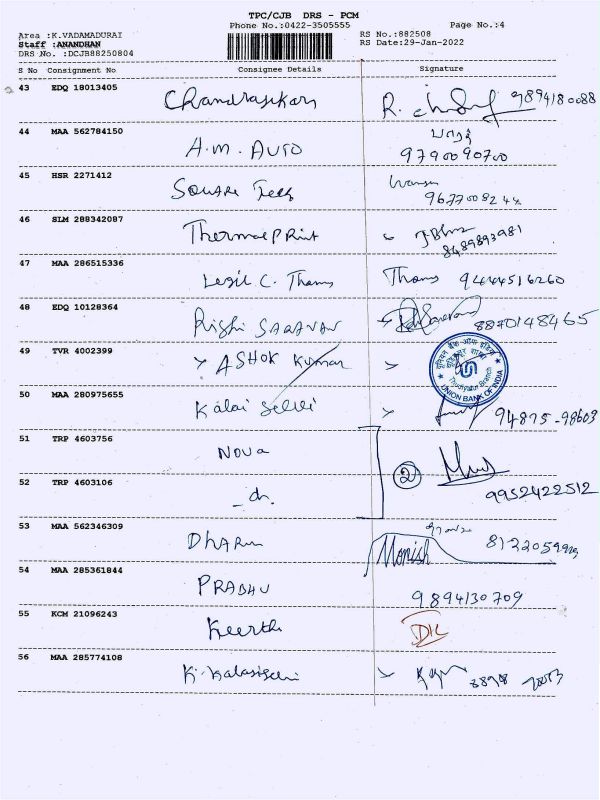 TPC/CJB DRS - PCM
Phone No.:0422-3505555
Page No.:4
Area :K.VADAMADURAI
RS No.:882508
Staff :ANANDHAN
RS Date:29-Jan-2022
DRS No. :DCJB88250804
S No Consignment No Consignee Details Signature
43 EDQ 18013405 Chandrasekars 9894180088
44 MAA 562784150 A.M. AUTO
9790090700
45 HSR 2271412 Square Tech
46 SLM 288342087 Thermal PRint
8489893981
47 MAA 286515336 Thoms 9444516260
48 EDQ 10128364 Rishi SARAVAN 8870148465
49 TVR 4002399 ASHOK Kumar
Thudiyalur Branch
UNION BANK OF INDIA
50 MAA 280975655 Kalai Selvi 94875-98603
51 TRP 4603756 Nova
2
52 TRP 4603106 - do. 9952422512
53 MAA 562346309 Dharun Monish
54 MAA 285361844 PRABHU 9894130709
55 KCM 21096243 Keerthi
56 MAA 285774108 K. Kalaiselvi